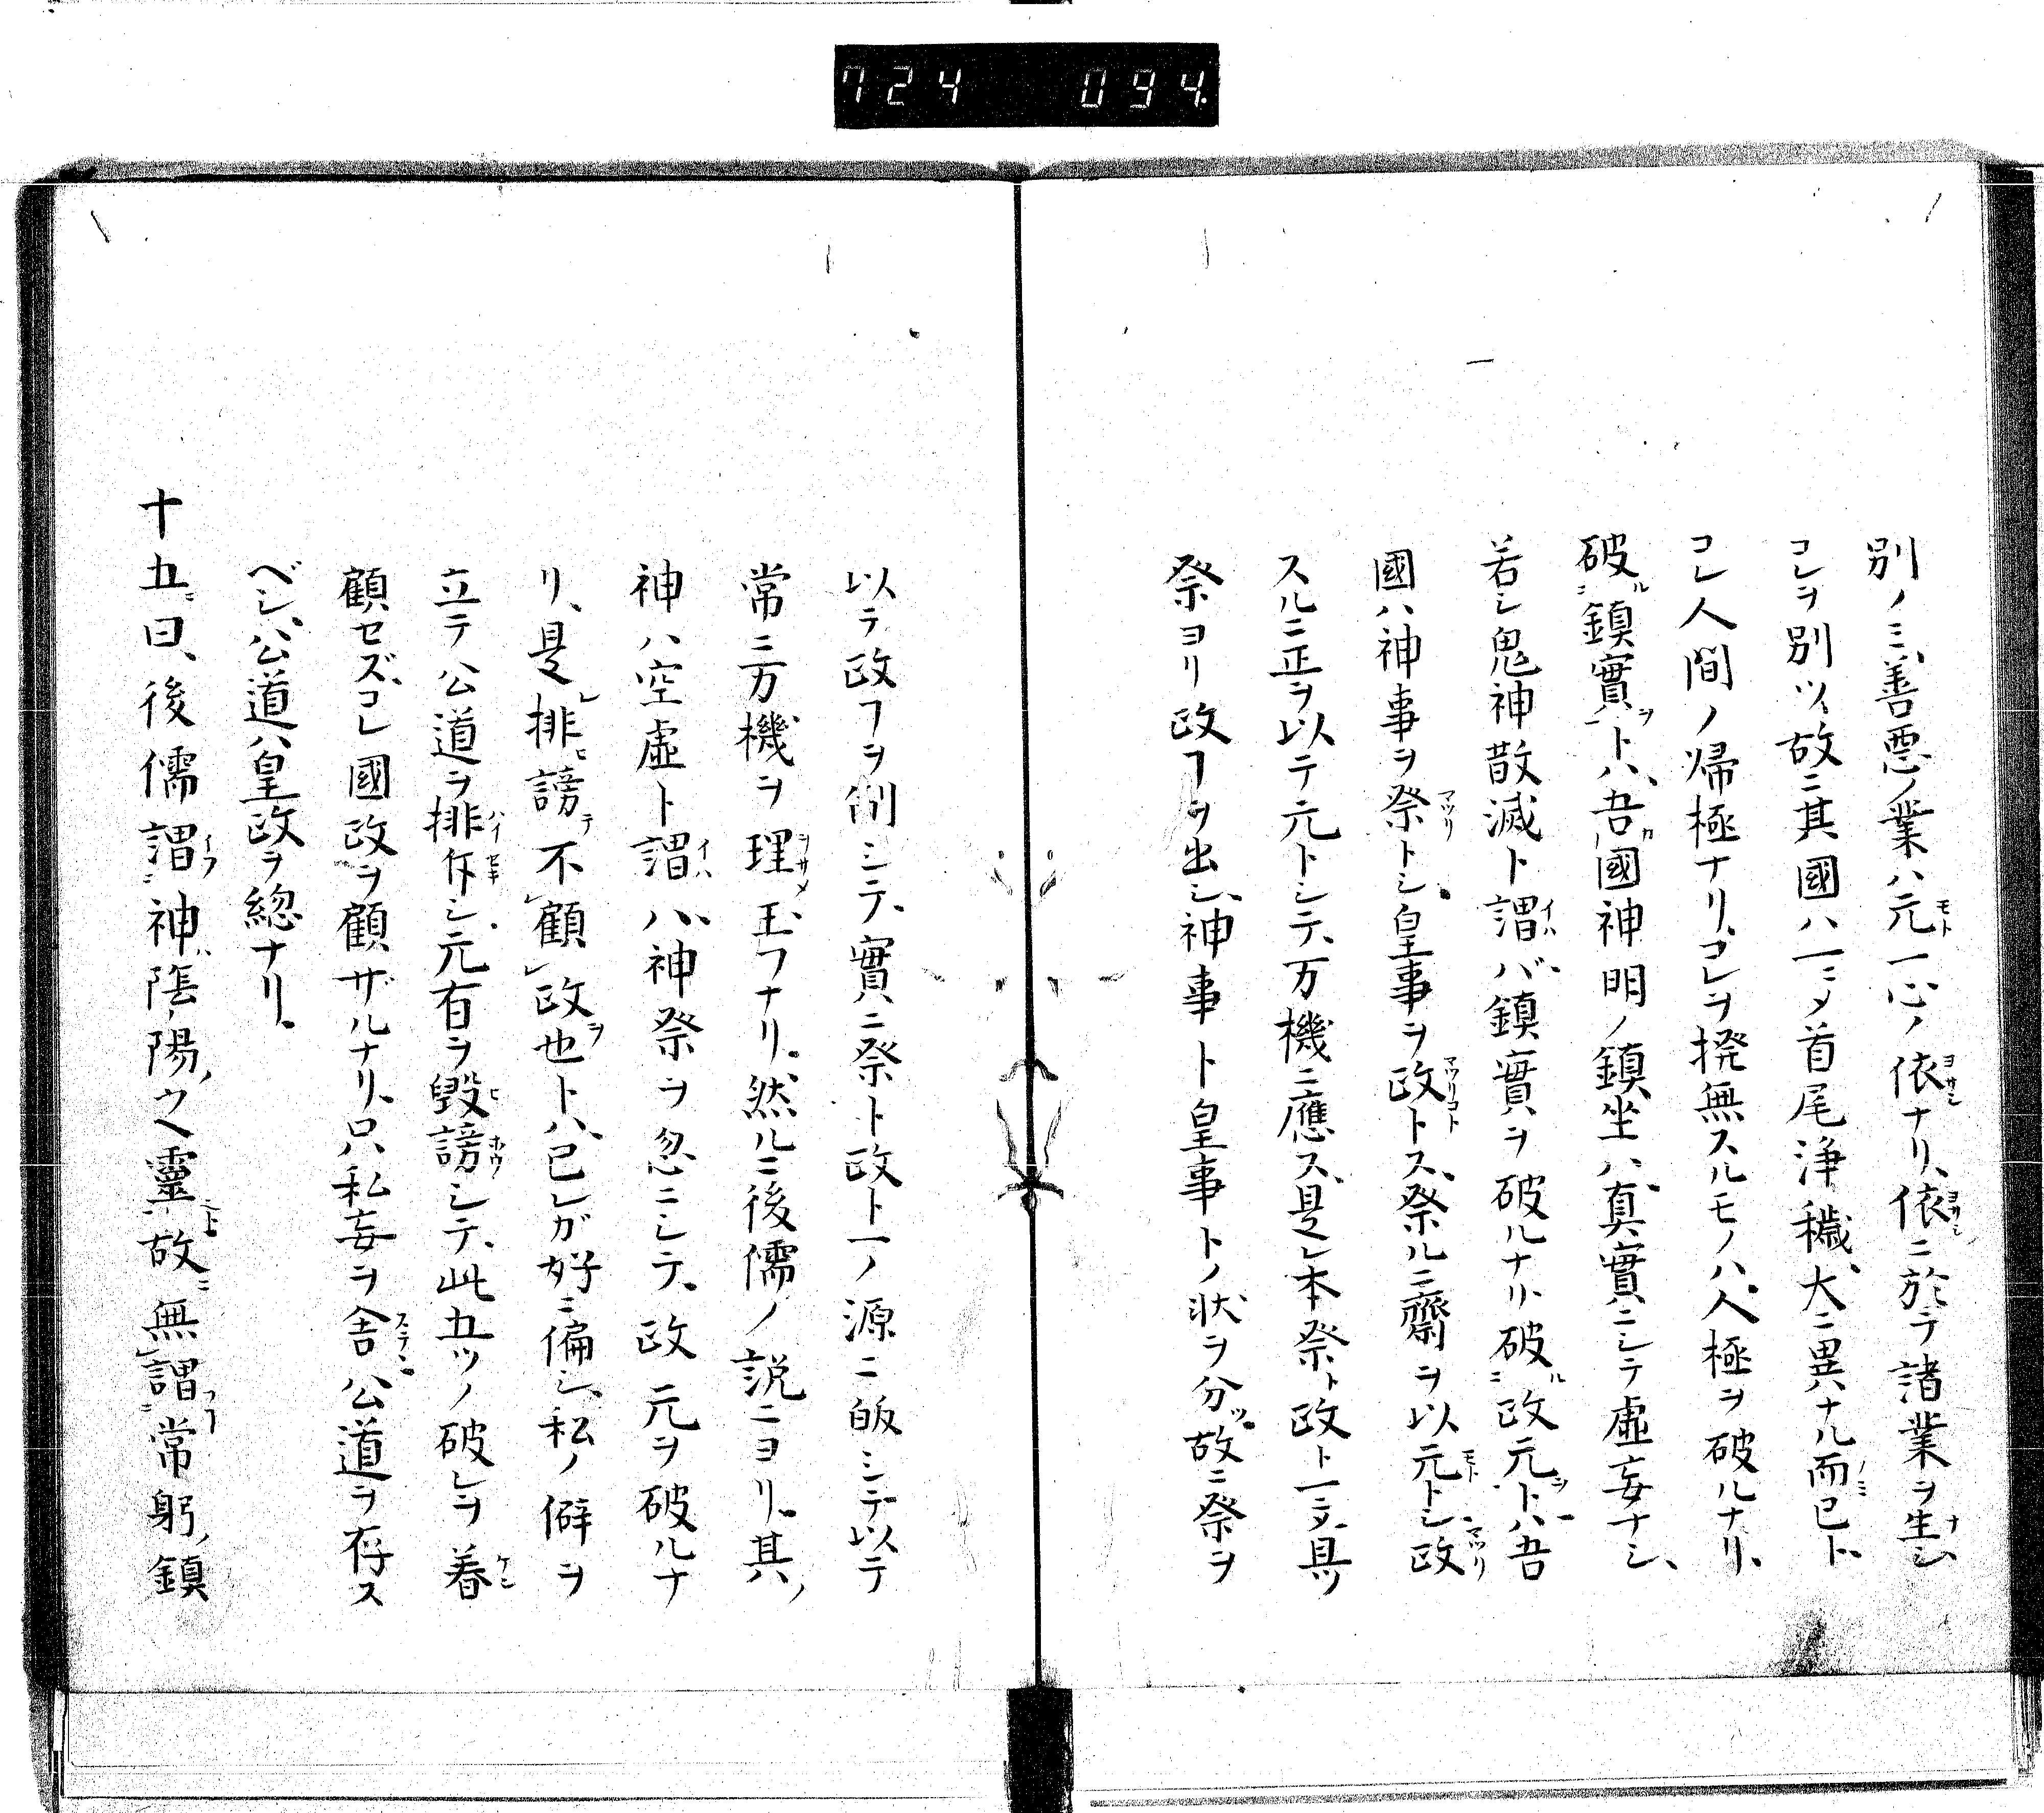 724 094
別ノミ、善悪ノ業ハ元一心ノ依ナリ、依ニ於テ諸業ヲ生シ
コレヲ別ツ、故ニ其國ハ一ニメ首尾浄穢、大ニ異ハナル而已ト、
コレ人間ノ帰極ナリ、コレヲ撥無スルモノハ、人極ヲ破ルナリ、
破ルニ鎮實ヲトハ、吾カ國神明ノ鎮坐ハ、真實ニシテ虚妄ナシ、
若シ鬼神散滅ト謂バ、鎮實ヲ破ルナリ、破ルニ政元ヲトハ、吾
國ハ神事ヲ祭トシ、皇事ヲ政トス、祭ルニ齋ヲ以元トシ、政
スルニ正ヲ以テ元トシテ、万機ニ應ス、是レ本祭ト政ト一ニ具ツ
祭ヨリ政フヿヲ出シ、神事ト皇事トノ状ヲ分ツ、故ニ祭ヲ
以テ政フヲ制シテ、實ニ祭ト政ト一ノ源ニ皈シテ以テ
常ニ万機ヲ理玉フナリ、然ルニ後儒ノ説ニヨリ、其ノ
神ハ空虚ト謂ハ、神祭ヲ忽ニシテ、政元ヲ破ルナ
リ、是レ排ヒ謗テ不顧政ヲ也トハ、已レガ好ニ偏シ、私ノ僻ヲ
立テ公道ヲ排斥シ、元有ヲ毀謗シテ、此五ツノ破レヲ着
顧セズ、コレ國政ヲ顧ザルナリ、只私妄ヲ舎公道ヲ存ス
ベシ、公道ハ皇政ヲ總ナリ、
十五ニ曰、後儒謂ニ神ハ陰陽ノ之靈、故ニ無謂ニ常躬ノ鎮